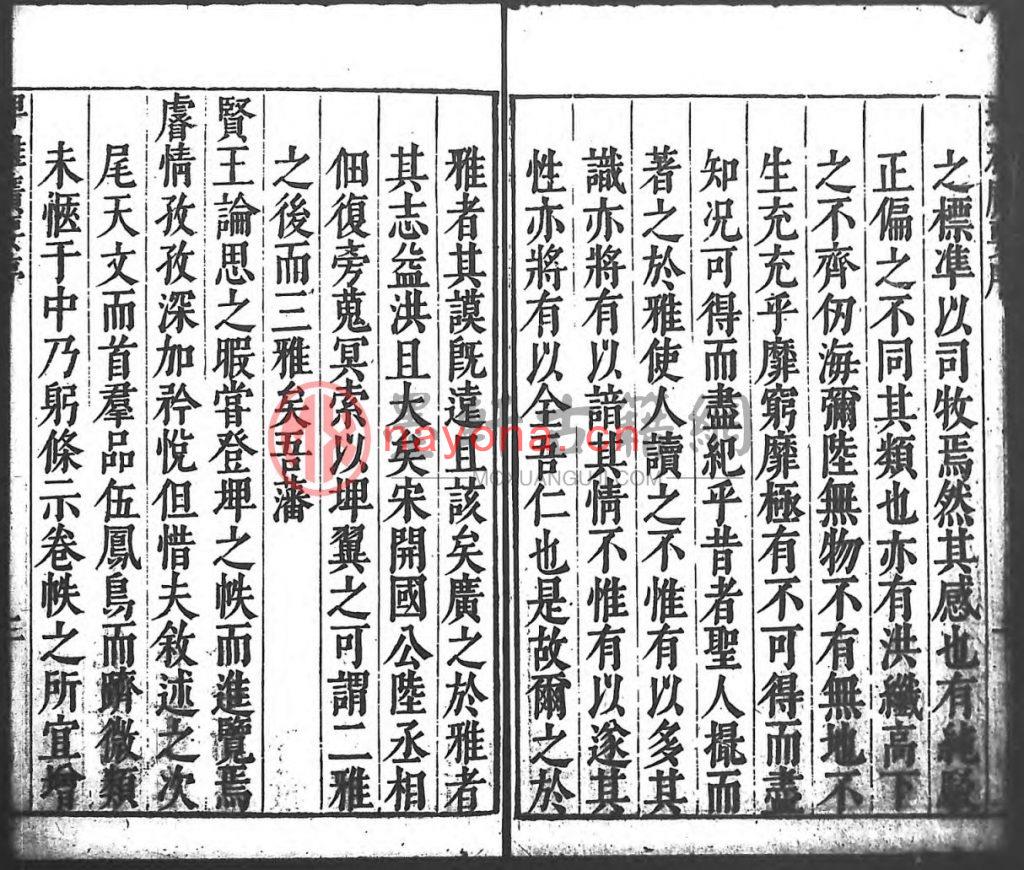 之標準以司牧焉然其感也有純駁
正偏之不同其類也亦有洪纖高下
之不齊仞海彌陸無物不有無地不
生充充乎靡窮靡極有不可得而盡
知况可得而盡紀乎昔者聖人撮而
著之於雅使人讀之不惟有以多其
識亦將有以諳其情不惟有以遂其
性亦將有以全吾仁也是故爾之於
雅者其謨旣遠且該矣廣之於雅者
其志益洪且大矣宋開國公陸丞相
佃復旁蒐冥索以埤翼之可謂二雅
之後而三雅矣吾藩
賢王論思之暇甞登埤之帙而進覽焉
睿情孜孜深加矜悅但惜夫敘述之次
尾天文而首羣品伍鳳鳥而躋微類
未愜于中乃躬條示卷帙之所宜增
nayona.cn
MOXUANGUJI.COM